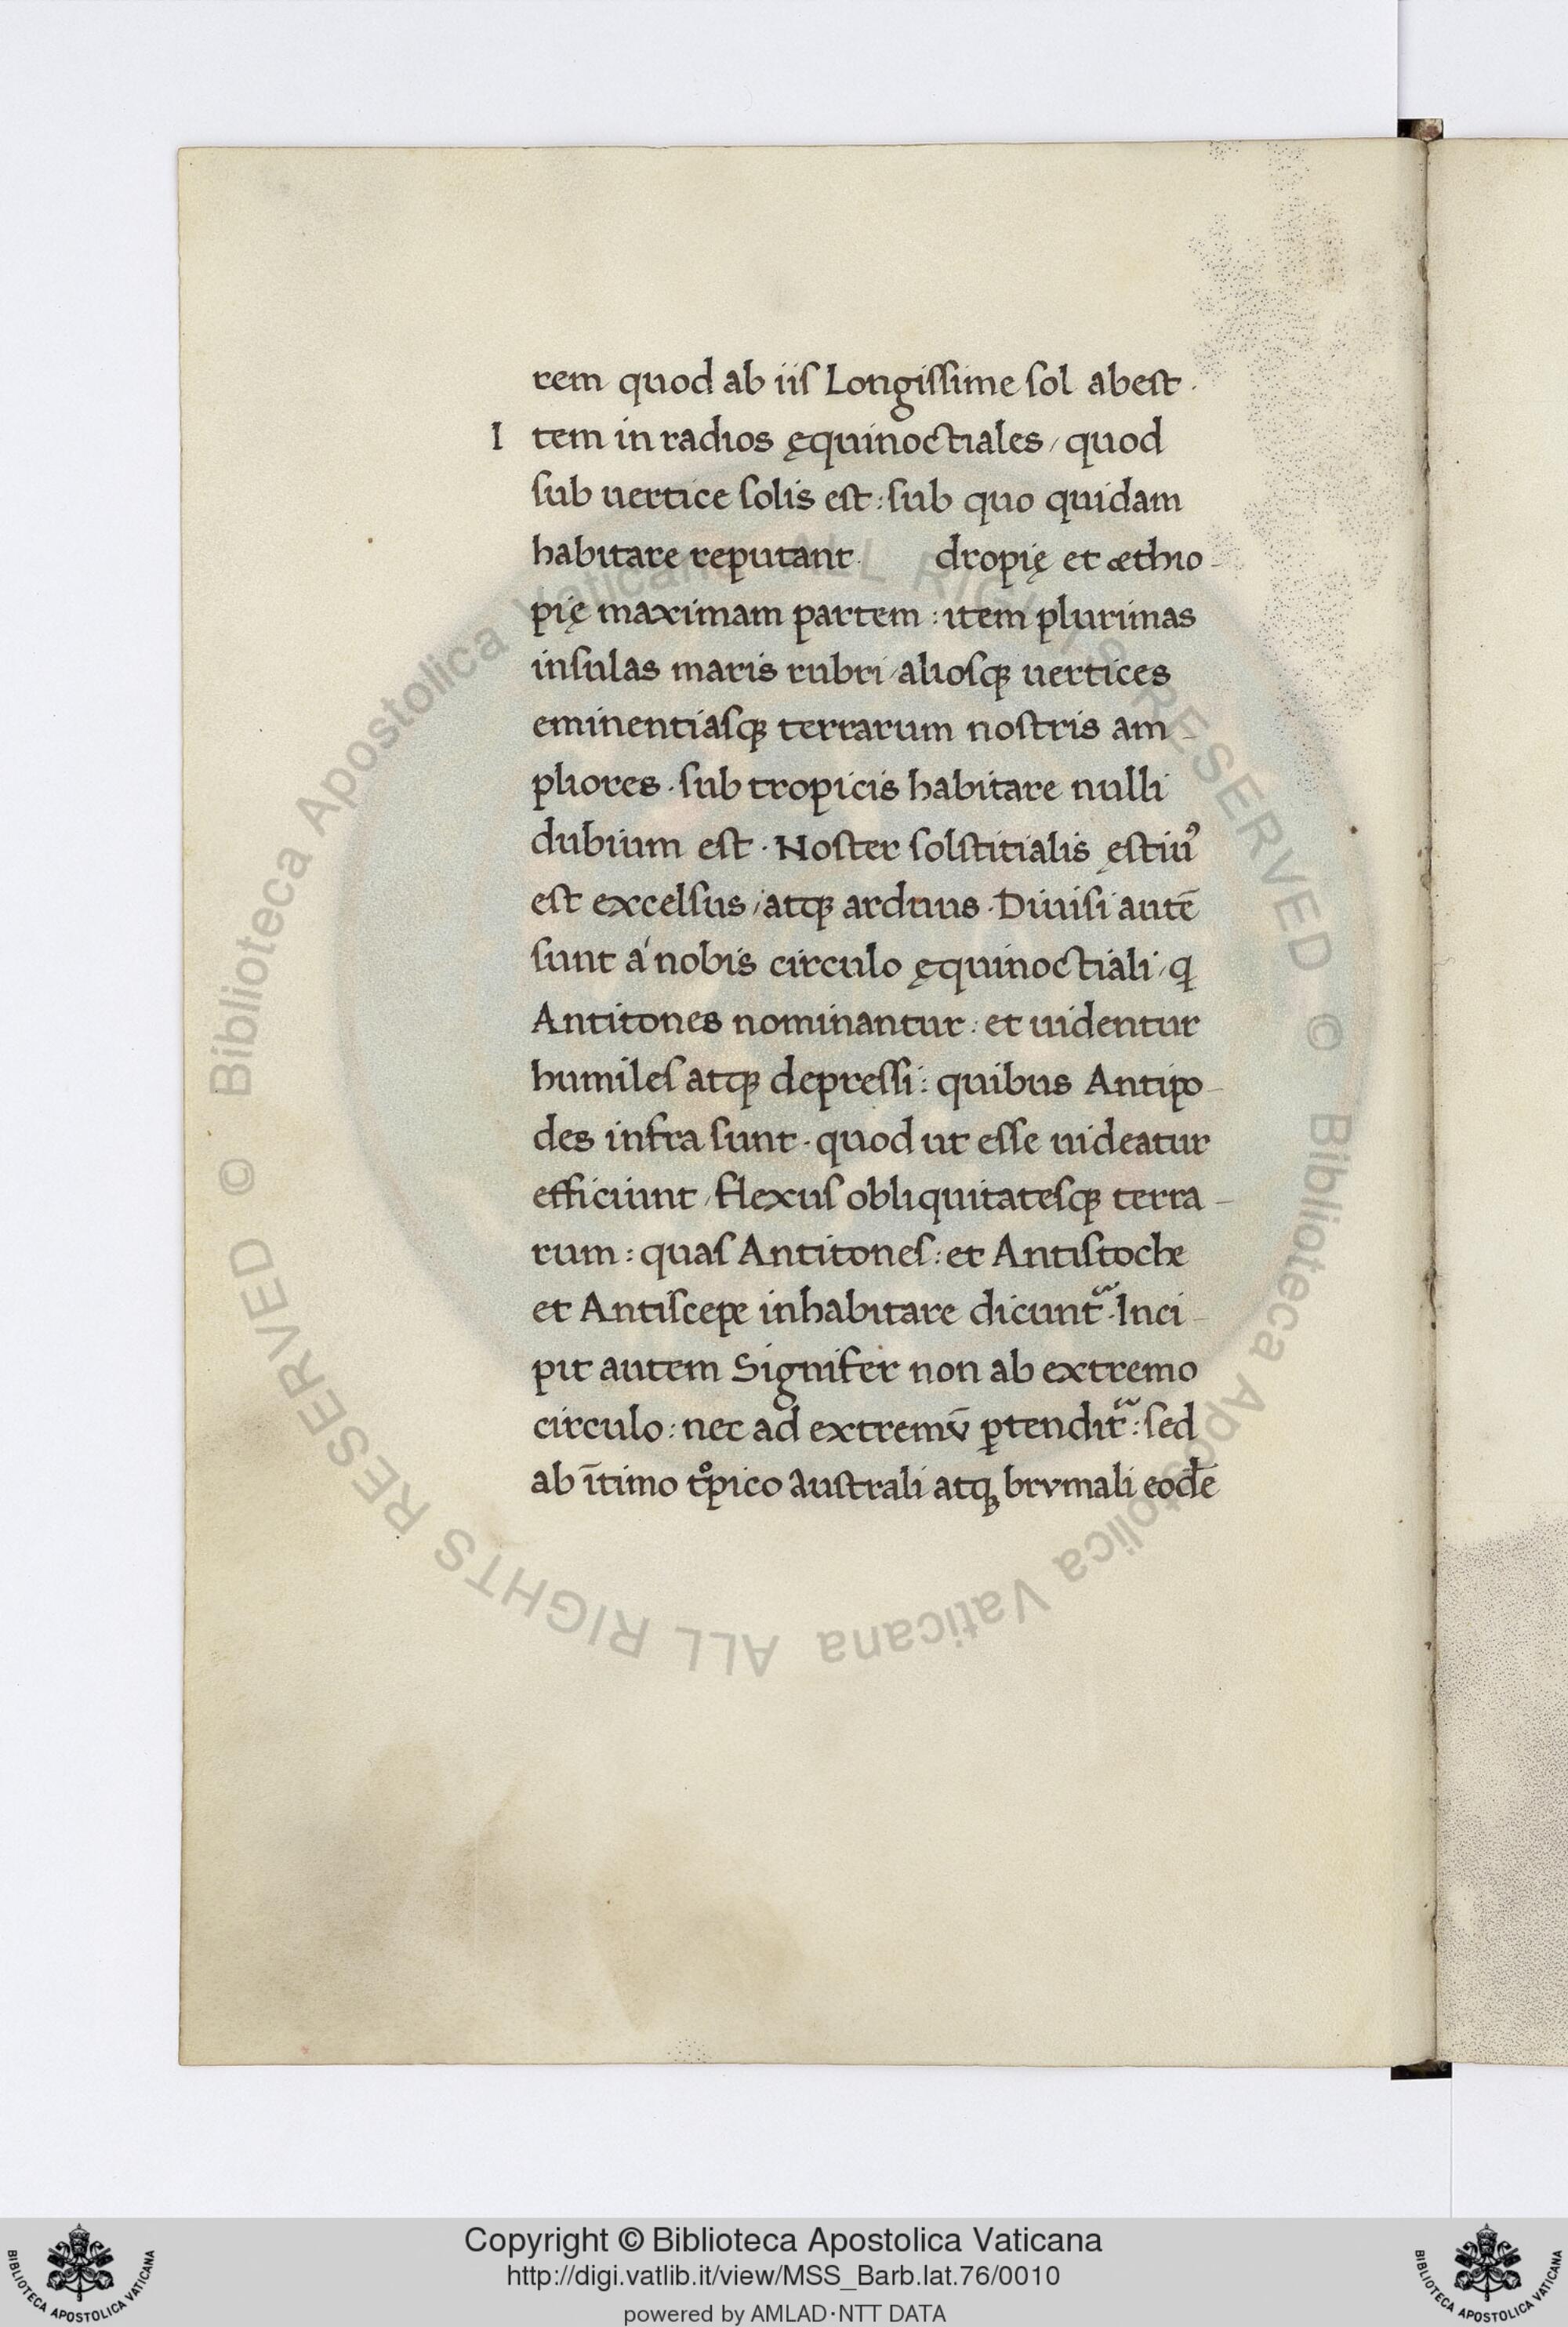 rem quod ab iis Longissime sol abest.
Item in radios ęquinoctiales / quod
sub uertice solis est : sub quo quidam
habitare reputant. dropię et æthio-
pię maximam partem : item plurimas
insulas maris rubri / aliosqꝫ uertices
eminentiasqꝫ terrarum nostris am-
pliores. sub tropicis habitare nulli
dubium est. Noster solstitialis ęstiuꝰ
est excelsus / atqꝫ arduus. Diuisi autē
sunt á nobis circulo ęquinoctiali / q
Antitones nominantur : et uidentur
humiles atqꝫ depressi : quibus Antipo-
des infra sunt. quod ut esse uideatur
efficiunt / flexus obliquitatesqꝫ terra-
rum : quas Antitones : et Antistoche
et Antiscepe inhabitare dicunt᷑. Inci-
pit autem Signifer non ab extremo
circulo : nec ad extremv̄ ꝑtendit᷑ : sed
ab ītimo tͦpico australi atqꝫ brvmali eodē
© Biblioteca Apostolica Vaticana ALL RIGHTS RESERVED © Biblioteca Apostolica Vaticana ALL RIGHTS RESERVED
Copyright © Biblioteca Apostolica Vaticana
http://digi.vatlib.it/view/MSS_Barb.lat.76/0010
powered by AMLAD·NTT DATA
BIBLIOTECA APOSTOLICA VATICANA
BIBLIOTECA APOSTOLICA VATICANA